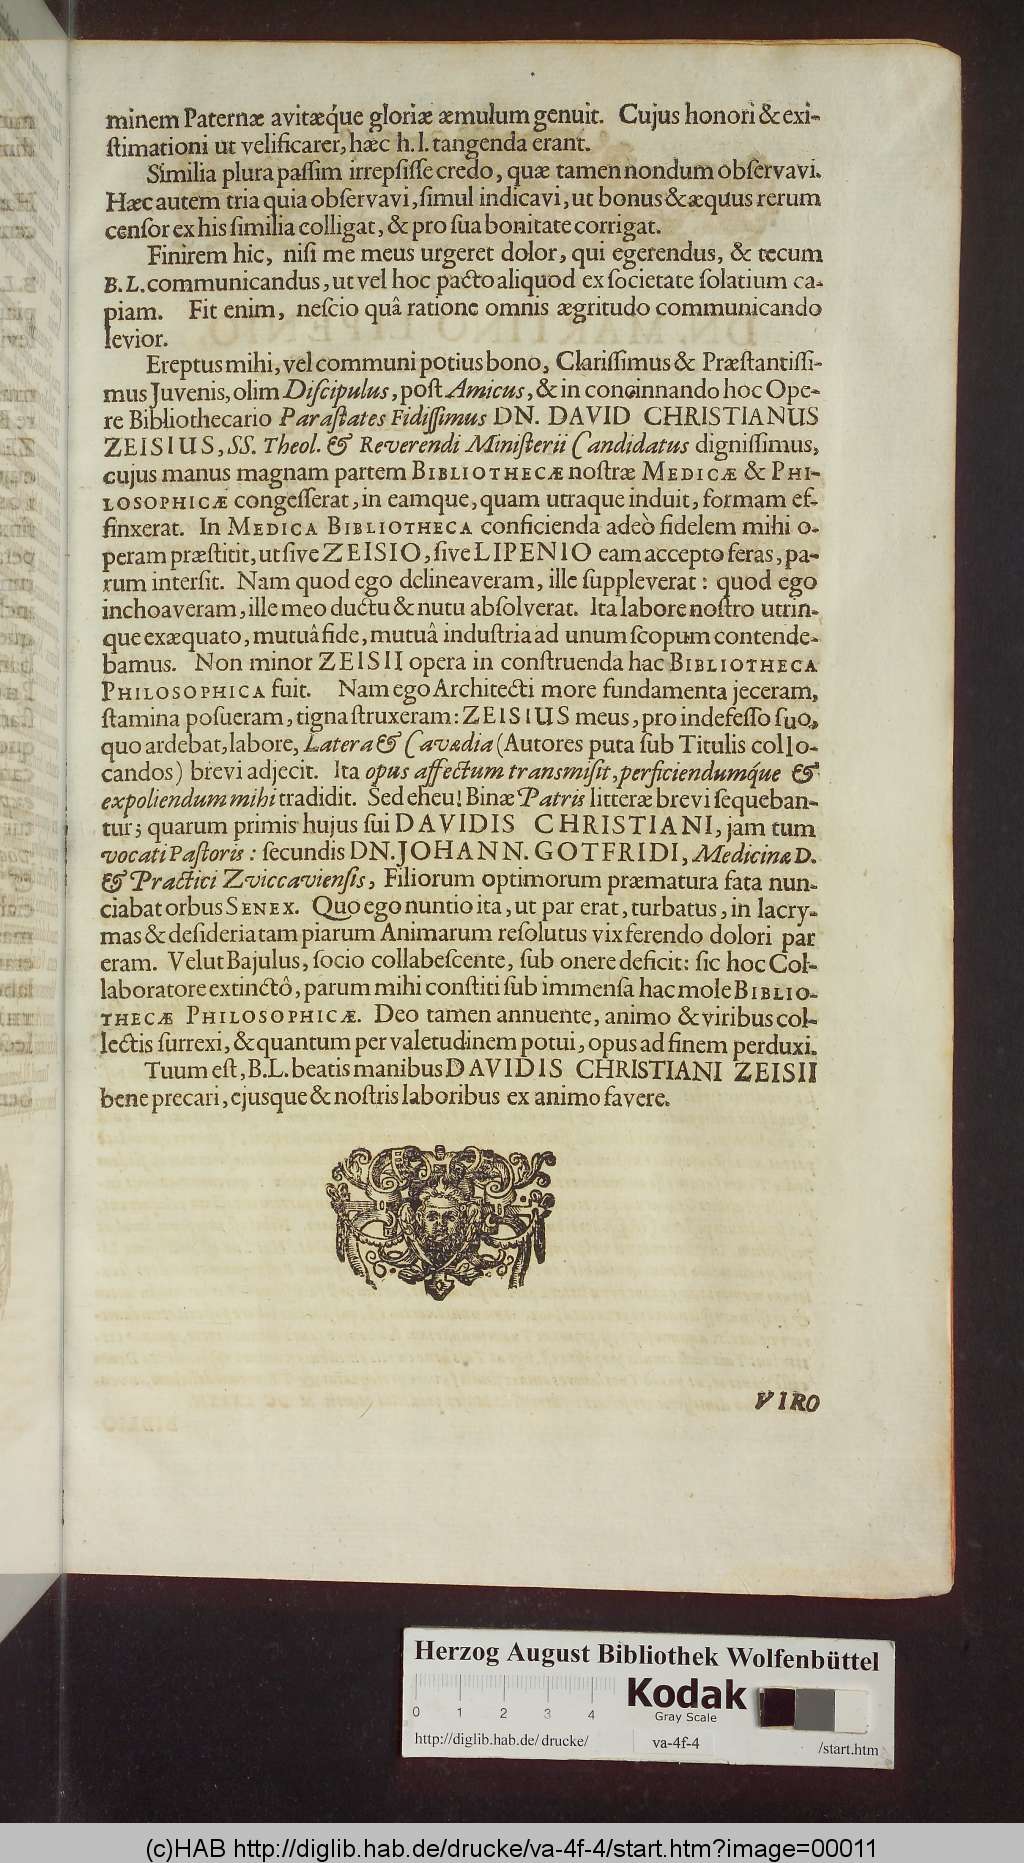 minem Paternæ avitæq́ue gloriæ æmulum genuit. Cujus honori & exi-
ſtimationi ut velificarer, hæc h. l. tangenda erant.
Similia plura paſſim irrepſiſſe credo, quæ tamen nondum obſervavi.
Hæc autem tria quia obſervavi, ſimul indicavi, ut bonus & æquus rerum
cenſor ex his ſimilia colligat, & pro ſua bonitate corrigat.
Finirem hic, niſi me meus urgeret dolor, qui egerendus, & tecum
B. L. communicandus, ut vel hoc pacto aliquod ex ſocietate ſolatium ca-
piam. Fit enim, neſcio quâ ratione omnis ægritudo communicando
levior.
Ereptus mihi, vel communi potius bono, Clariſſimus & Præſtantiſſi-
mus Juvenis, olim Diſcipulus, poſt Amicus, & in concinnando hoc Ope-
re Bibliothecario Paraſtates Fidiſſimus DN. DAVID CHRISTIANUS
ZEISIUS, SS. Theol. & Reverendi Miniſterii Candidatus digniſſimus,
cujus manus magnam partem BIBLIOTHECÆ noſtræ MEDICÆ & PHI-
LOSOPHICÆ congeſſerat, in eamque, quam utraque induit, formam ef-
finxerat. In MEDICA BIBLIOTHECA conficienda adeò fidelem mihi o-
peram præſtitit, ut ſive ZEISIO, ſive LIPENIO eam accepto feras, pa-
rum interſit. Nam quod ego delineaveram, ille ſuppleverat: quod ego
inchoaveram, ille meo ductu & nutu abſolverat. Ita labore noſtro utrin-
que exæquato, mutuâ fide, mutuâ induſtria ad unum ſcopum contende-
bamus. Non minor ZEISII opera in conſtruenda hac BIBLIOTHECA
PHILOSOPHICA fuit. Nam ego Architecti more fundamenta jeceram,
ſtamina poſueram, tigna ſtruxeram: ZEISIUS meus, pro indefeſſo ſuo,
quo ardebat, labore, Latera & Cavædia (Autores puta ſub Titulis collo-
candos) brevi adjecit. Ita opus affectum transmiſit, perficiendumq́ue &
expoliendum mihi tradidit. Sed eheu! Binæ Patris litteræ brevi ſequeban-
tur; quarum primis hujus ſui DAVIDIS CHRISTIANI, jam tum
vocati Paſtoris: ſecundis DN. JOHANN. GOTFRIDI, Medicinæ D.
& Practici Zviccavienſis, Filiorum optimorum præmatura fata nun-
ciabat orbus SENEX. Quo ego nuntio ita, ut par erat, turbatus, in lacry-
mas & deſideria tam piarum Animarum reſolutus vix ferendo dolori par
eram. Velut Bajulus, ſocio collabeſcente, ſub onere deficit: ſic hoc Col-
laboratore extinctô, parum mihi conſtiti ſub immenſa hac mole BIBLIO-
THECÆ PHILOSOPHICÆ. Deo tamen annuente, animo & viribus col-
lectis ſurrexi, & quantum per valetudinem potui, opus ad finem perduxi.
Tuum eſt, B.L. beatis manibus DAVIDIS CHRISTIANI ZEISII
bene precari, ejusque & noſtris laboribus ex animo favere.
VIRO
Herzog August Bibliothek Wolfenbüttel
0 1 2 3 4
Kodak
Gray Scale
http://diglib.hab.de/drucke/ va-4f-4 /start.htm
(c)HAB http://diglib.hab.de/drucke/va-4f-4/start.htm?image=00011